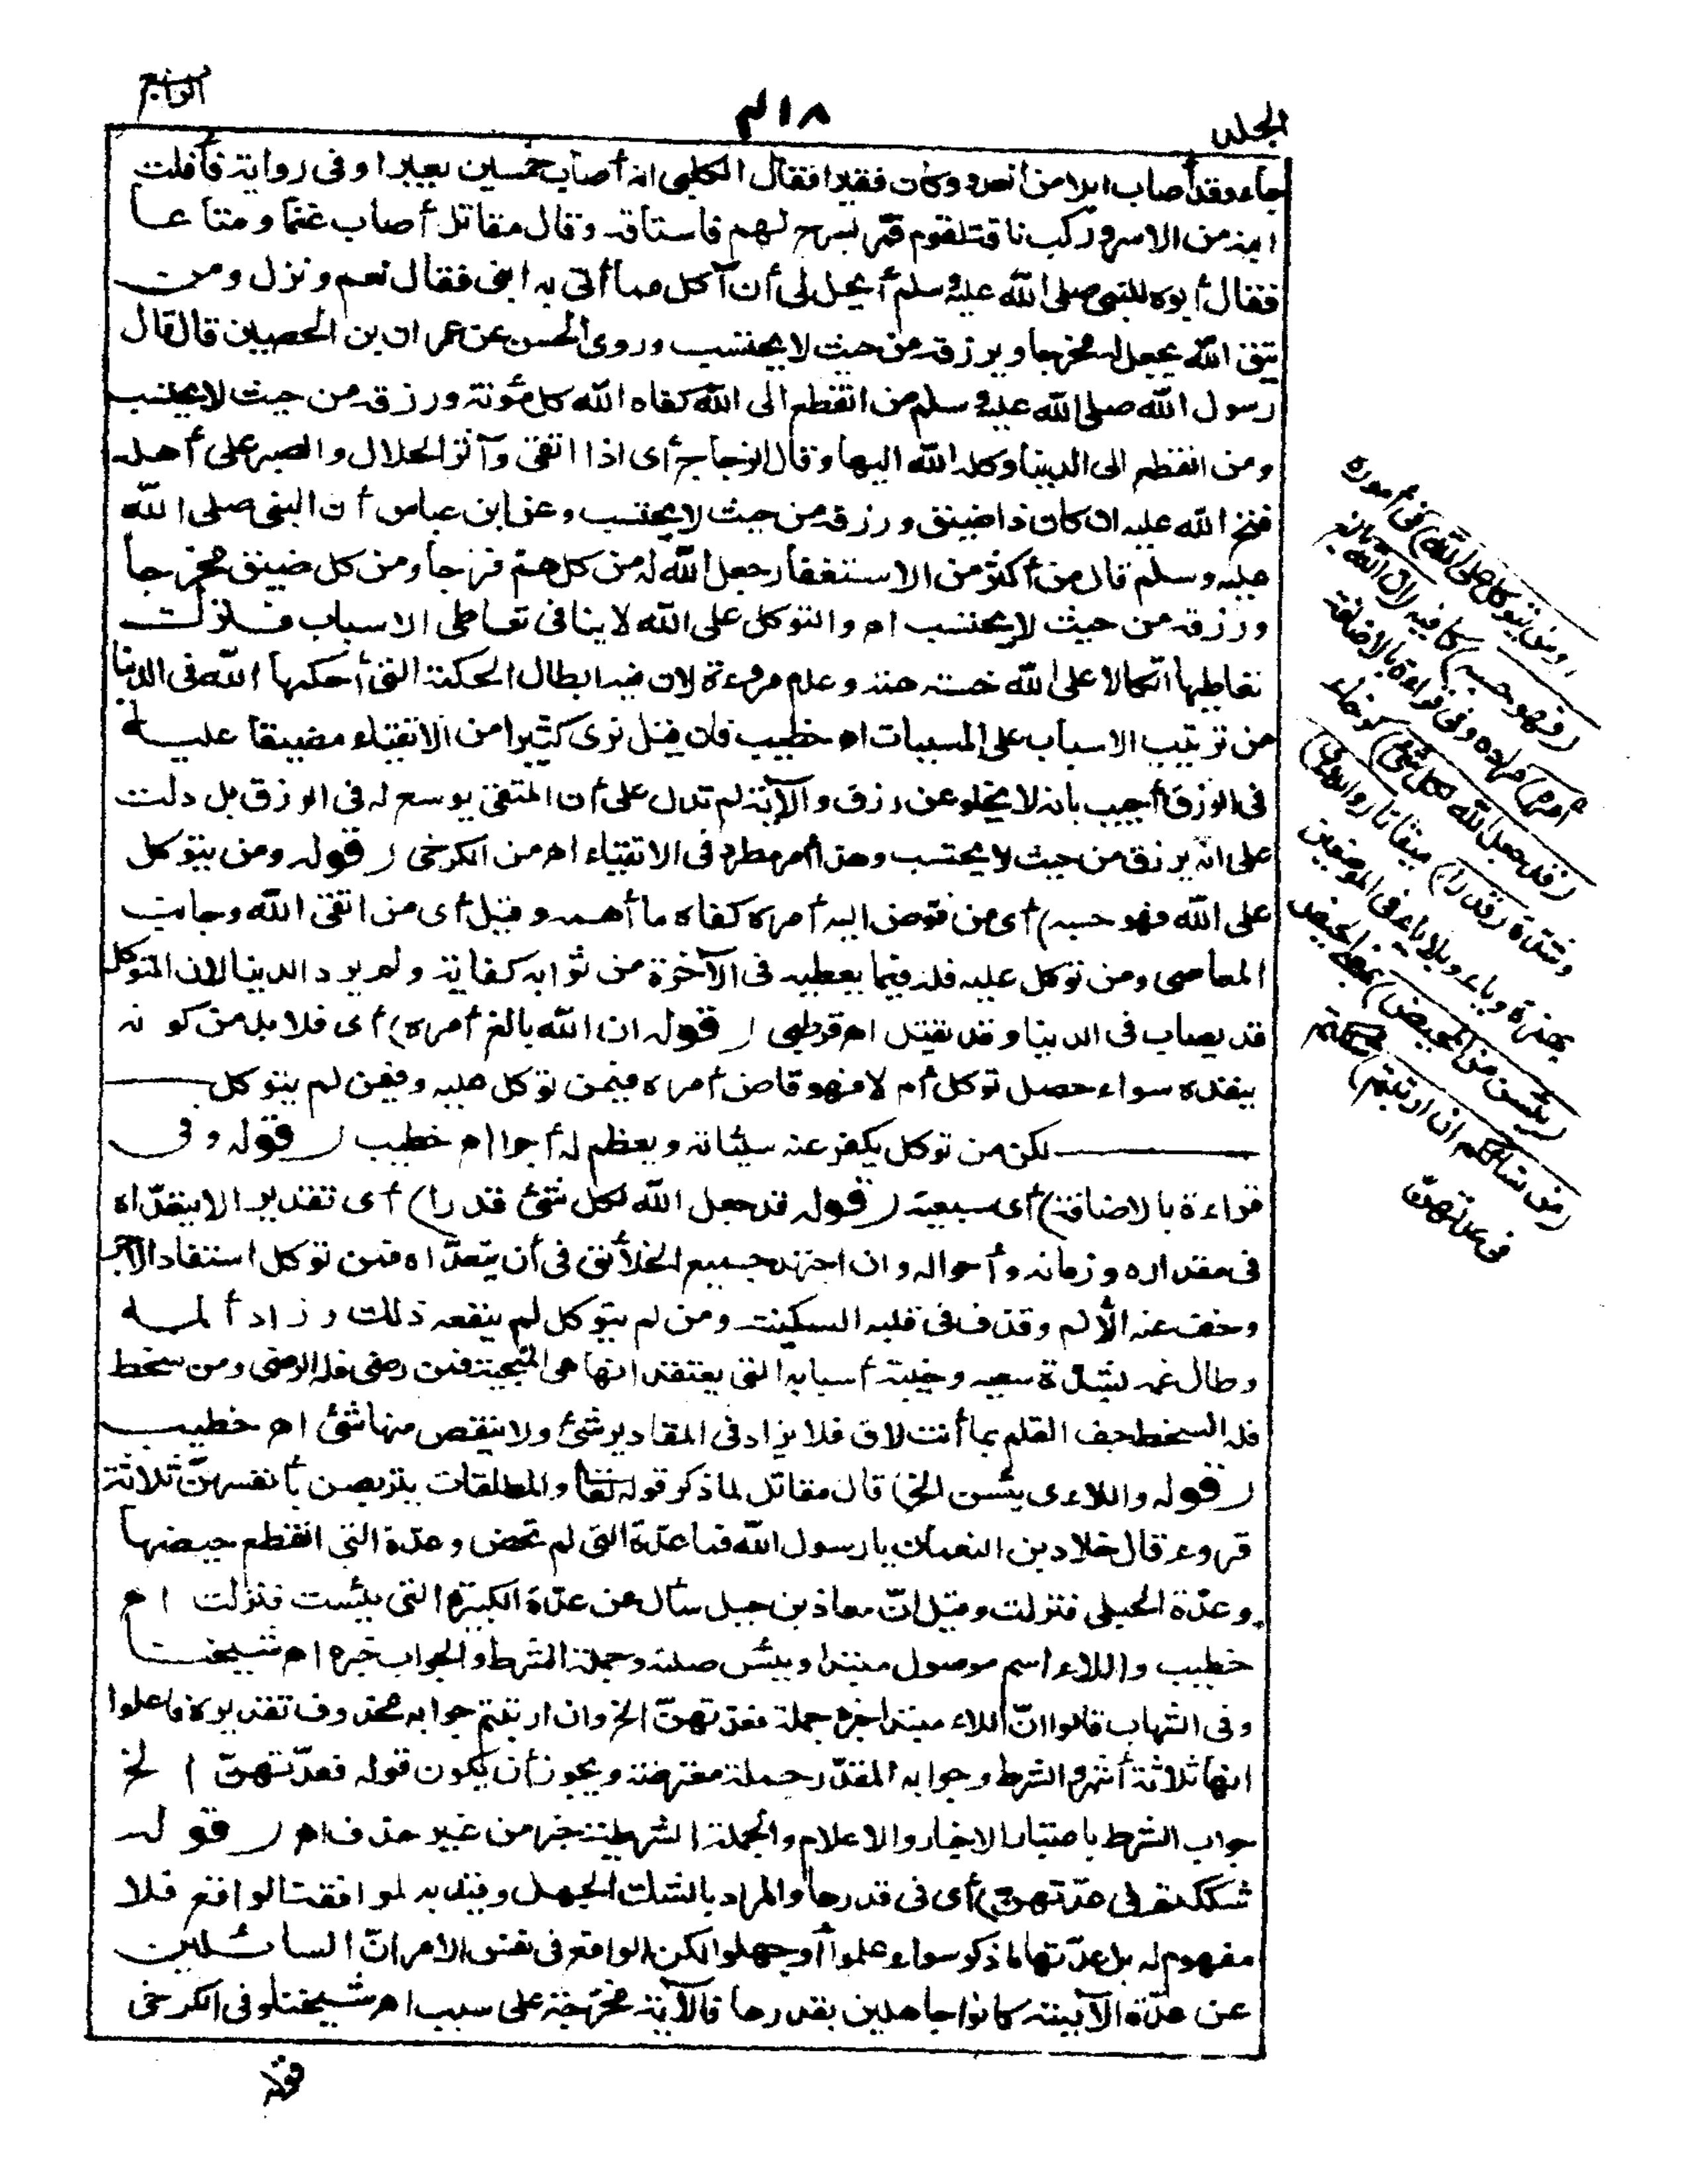 الجلد
٤١٨
الرابع
جاء وقد أصاب ابلا من العدو وكان فقيرا فقال الكلبى انه أصاب خمسين بعيرا وفى رواية فأفلت
ابنه من الاسر وركب ناقة لقوم فمر بسرح لهم فاستاقه وقال مقاتل أصاب غنما ومتاعا
فقال أبوه للنبى صلى الله عليه وسلم أيحل لى أن آكل مما أتى به ابنى فقال نعم ونزل ومن
يتق الله يجعل له مخرجا ويرزقه من حيث لا يحتسب وروى الحسن عن عمران بن الحصين قال قال
رسول الله صلى الله عليه وسلم من انقطع الى الله كفاه الله كل مؤنة ورزقه من حيث لا يحتسب
ومن انقطع الى الدنيا وكله الله اليها وقال الزجاج أى اذا اتقى وآثر الحلال والصبر على أهله
فتح الله عليه ان كان ذا ضيق ورزقه من حيث لا يحتسب وعن ابن عباس أن النبى صلى الله
عليه وسلم قال من أكثر من الاستغفار جعل الله له من كل هم فرجا ومن كل ضيق مخرجا
ورزقه من حيث لا يحتسب اه والتوكل على الله لا ينافى تعاطى الاسباب فترك
تعاطيها اتكالا على الله خسة همة وعدم مروءة لان فيه ابطال الحكمة التى أحكمها الله فى الدنيا
من ترتيب الاسباب على المسببات اه خطيب فان قيل نرى كثيرا من الاتقياء مضيقا عليه
فى الرزق أجيب بأنه لا يخلو عن رزق والآية لم تدل على أن المتقى يوسع له فى الرزق بل دلت
على انه يرزق من حيث لا يحتسب وهذا أمر مطرد فى الاتقياء اه من الكرخى (قوله ومن يتوكل
على الله فهو حسبه) أى من فوض اليه أمره كفاه ما أهمه وقيل أى من اتقى الله وجانب
المعاصى ومن توكل عليه فله فيما يعطيه فى الآخرة من ثوابه كفاية ولم يرد الدنيا لان المتوكل
قد يصاب فى الدنيا وقد يقتل اه قرطبى (قوله ان الله بالغ أمره) أى فلا بد من كونه
ينفذه سواء حصل توكل أم لا فهو قاض أمره فيمن توكل عليه وفيمن لم يتوكل
لكن من توكل يكفر عنه سيئاته ويعظم له أجرا اه خطيب (قوله وفى
قراءة بالاضافة) أى سبعية (قوله قد جعل الله لكل شئ قدرا) أى تقديرا لا يتعداه
فى مقداره وزمانه وأحواله وان اجتهد جميع الخلائق فى أن يتعداه فمن توكل استفاد الاجر
وخف عنه الألم وقذف فى قلبه السكينة ومن لم يتوكل لم ينفعه ذلك وزاد ألمه
وطال غمه بشدة سعيه وخيبة أسبابه التى يعتقد انها هى المنجية فمن رضى فله الرضى ومن سخط
فله السخط جف القلم بما أنت لاق فلا يزاد فى المقادير شئ ولا ينقص منها شئ اه خطيب
(قوله واللاءى يئسن الخ) قال مقاتل لما ذكر قوله تعالى والمطلقات يتربصن بأنفسهن ثلاثة
قروء قال خلاد بن النعمان يا رسول الله فما عدة التى لم تحض وعدة التى انقطع حيضها
وعدة الحبلى فنزلت وقيل ان معاذ بن جبل سأل عن عدة الكبيرة التى يئست فنزلت اه
خطيب واللاء اسم موصول مبتدأ ويئسن صلته وجملة الشرط والجواب خبره اه شيخنا
وفى الشهاب قالوا ان اللاء مبتدأ خبره جملة فعدتهن الخ وان ارتبتم جوابه محذوف تقديره فاعلموا
انها ثلاثة أشهر والشرط وجوابه المقدر جملة معترضة ويجوز أن يكون قوله فعدتهن الخ
جواب الشرط باعتبار الاخبار والاعلام والجملة الشرطية خبر من غير حذف اه (قوله
شككتم فى عدتهن) أى فى قدرها والمراد بالشك الجهل وقيد به لموافقة الواقع فلا
مفهوم له بل عدتها ما ذكر سواء علموا أو جهلوا لكن الواقع فى نفس الامر ان السائلين
عن عدة الآيسة كانوا جاهلين بقدرها فالآية مخرجة على سبب اه شيخنا وفى الكرخى
قوله
(ومن يتوكل على الله) فى أموره
(فهو حسبه) كافيه (ان الله بالغ
أمره) مراده وفى قراءة بالاضافة
(قد جعل الله لكل شئ) كرخاء
وشدة (قدرا) ميقاتا (واللاءى)
بهمزة وياء وبلا ياء فى الموضعين
(يئسن من المحيض) بمعنى الحيض
(من نسائكم ان ارتبتم) شككتم
فى عدتهن